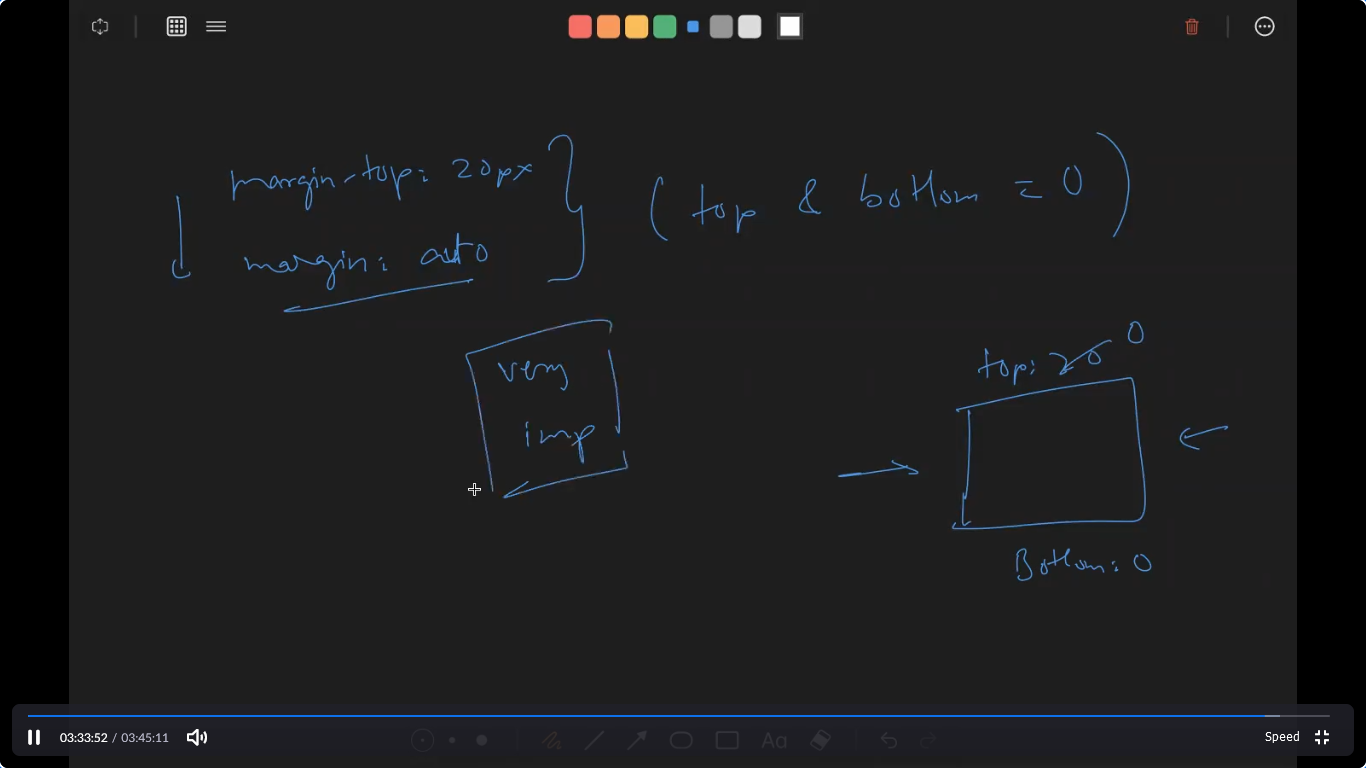 margin-top: 20px
margin: auto
(top & bottom = 0)
very
imp
top: 20 0
Bottom: 0
Aa
03:33:52 / 03:45:11
Speed